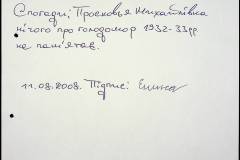 Спогади: Просковья Михайлівна
нічого про голодомор 1932-33рр.
не пам'ятає.
11.08.2008. Підпис: